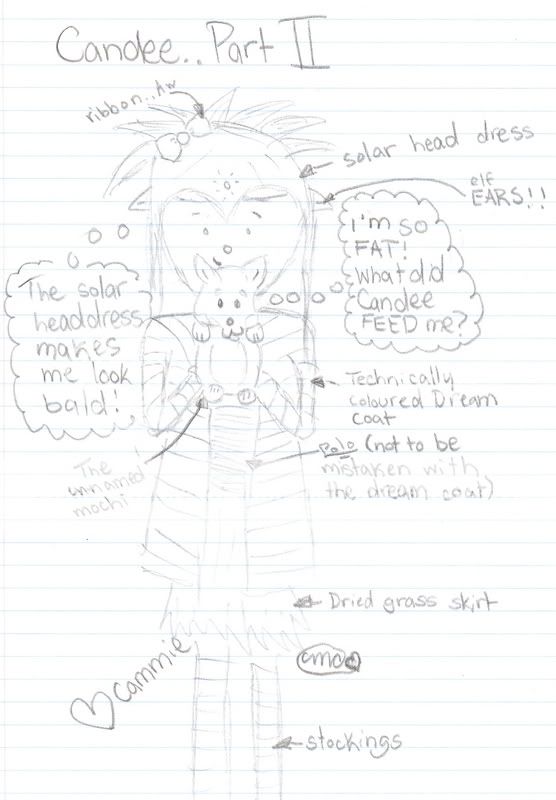 Candee.. Part II
ribbon..Aw
solar head dress
elf
EARS!!
I'm so
FAT!
What did
Candee
FEED me?
The solar
headdress
makes
me look
bald!
Technically
coloured Dream
coat
Polo (not to be
mistaken with
the dream coat)
The
unnamed
mochi
Dried grass skirt
cammie
stockings